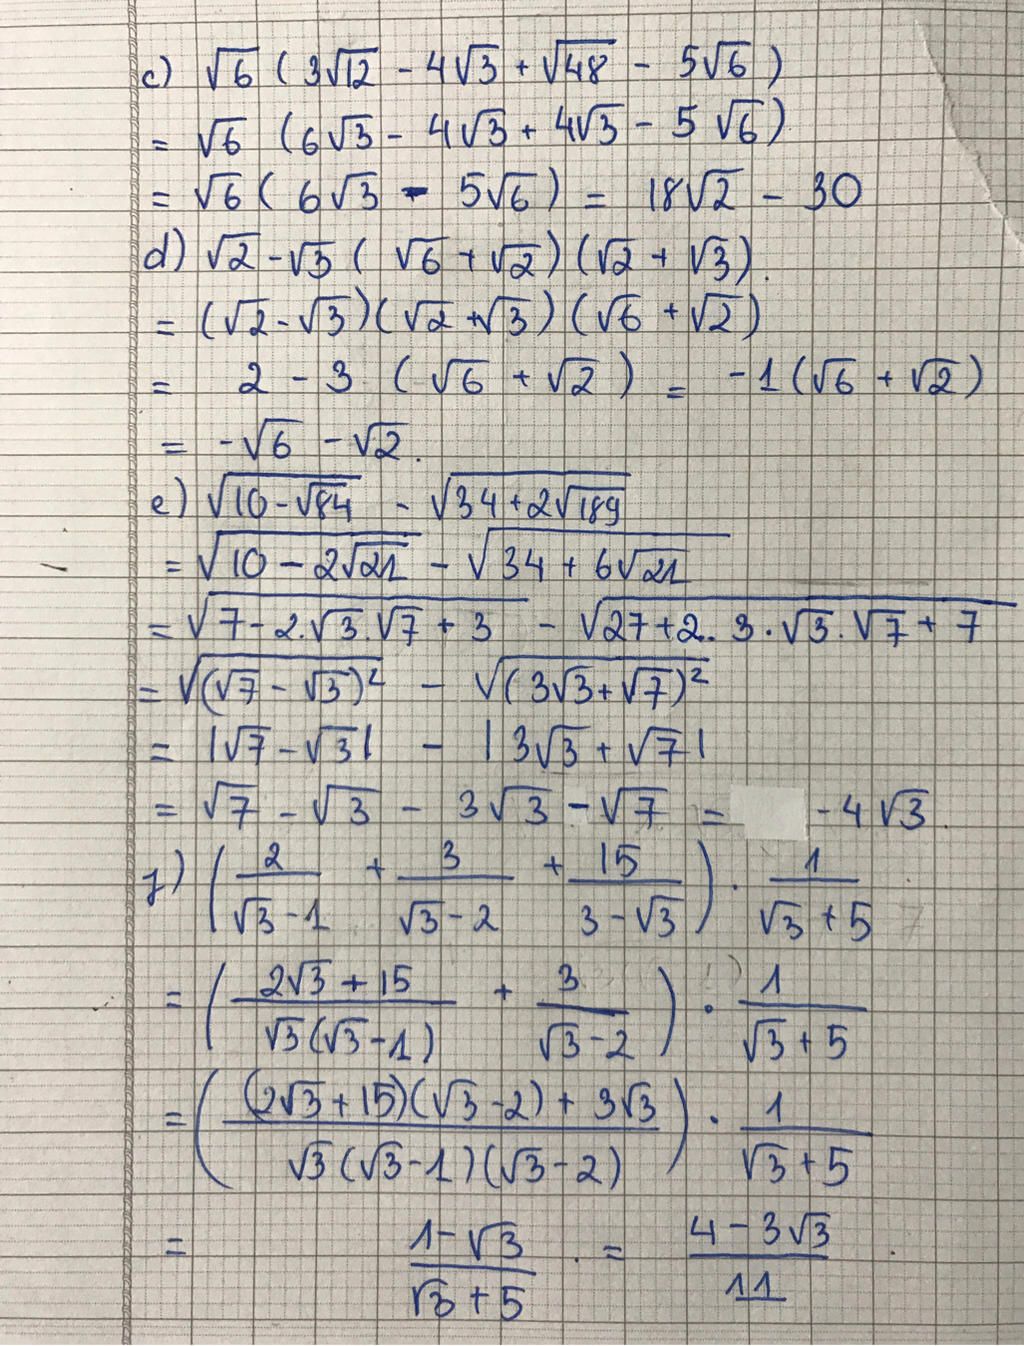 c) √6 ( 3√12 - 4√3 + √48 - 5√6 )
= √6 ( 6√3 - 4√3 + 4√3 - 5√6 )
= √6 ( 6√3 - 5√6 ) = 18√2 - 30
d) √2 - √3 ( √6 + √2 ) ( √2 + √3 ).
= (√2 - √3 ) ( √2 + √3 ) ( √6 + √2 )
= 2 - 3 ( √6 + √2 ) = -1 ( √6 + √2 )
= -√6 - √2.
e) √(10 - √84) - √(34 + 2√189)
= √(10 - 2√21) - √(34 + 6√21)
= √(7 - 2.√3.√7 + 3) - √(27 + 2. 3.√3.√7 + 7)
= √((√7 - √3)²) - √((3√3 + √7)²)
= |√7 - √3| - |3√3 + √7|
= √7 - √3 - 3√3 - √7 = -4√3.
f) ( 2/(√3 - 1) + 3/(√3 - 2) + 15/(3 - √3) ) . 1/(√3 + 5)
= ( (2√3 + 15)/(√3(√3 - 1)) + 3/(√3 - 2) ) . 1/(√3 + 5)
= ( ((2√3 + 15)(√3 - 2) + 3√3)/(√3(√3 - 1)(√3 - 2)) ) . 1/(√3 + 5)
= (1 - √3)/(√3 + 5) . = (4 - 3√3)/11 .